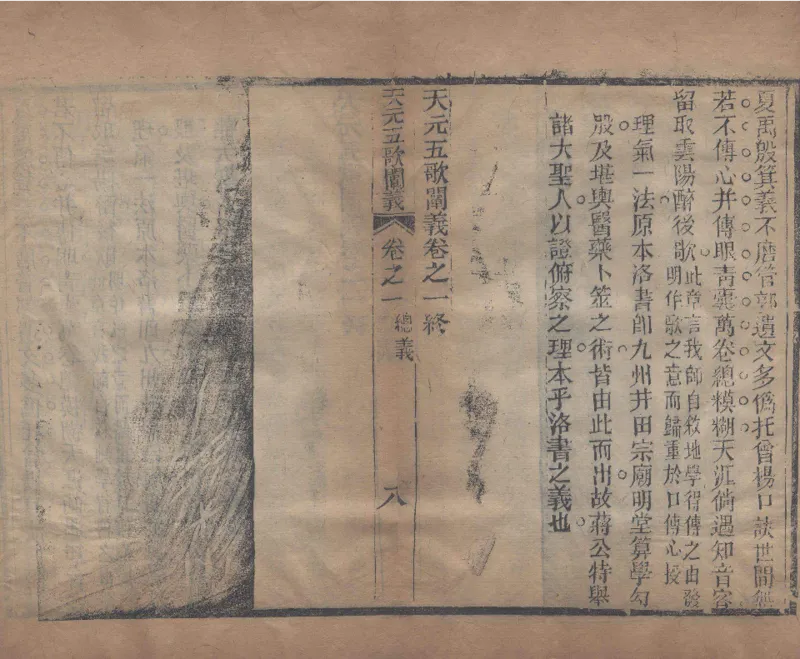 夏禹殷箕義不磨管郭遺文多僞托曾楊口訣世間無
若不傳心并傳眼靑囊萬卷總模糊天涯倘遇知音容
留取雲陽醉後歌此章言我師自敘地學得傳之由發
明作歌之意而歸重於口傳心授
理氣一法原本洛書卽九州井田宗廟明堂算學勾
股及堪輿醫藥卜筮之術皆由此而出故蔣公特舉
諸大聖人以證俯察之理本乎洛書之義也
天元五歌闡義卷之一終
天元五歌闡義 卷之一 總義 八